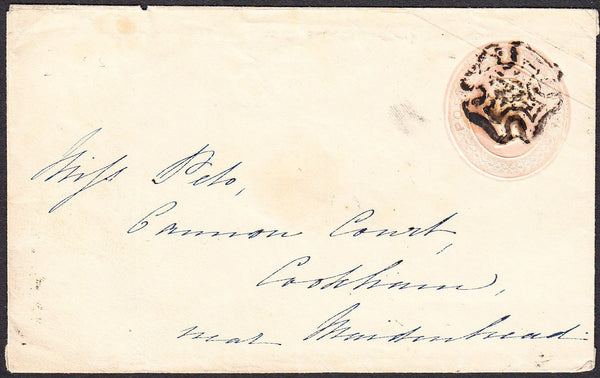 Miss Peto,
Cannon Court,
Cookham,
near Maidenhead.